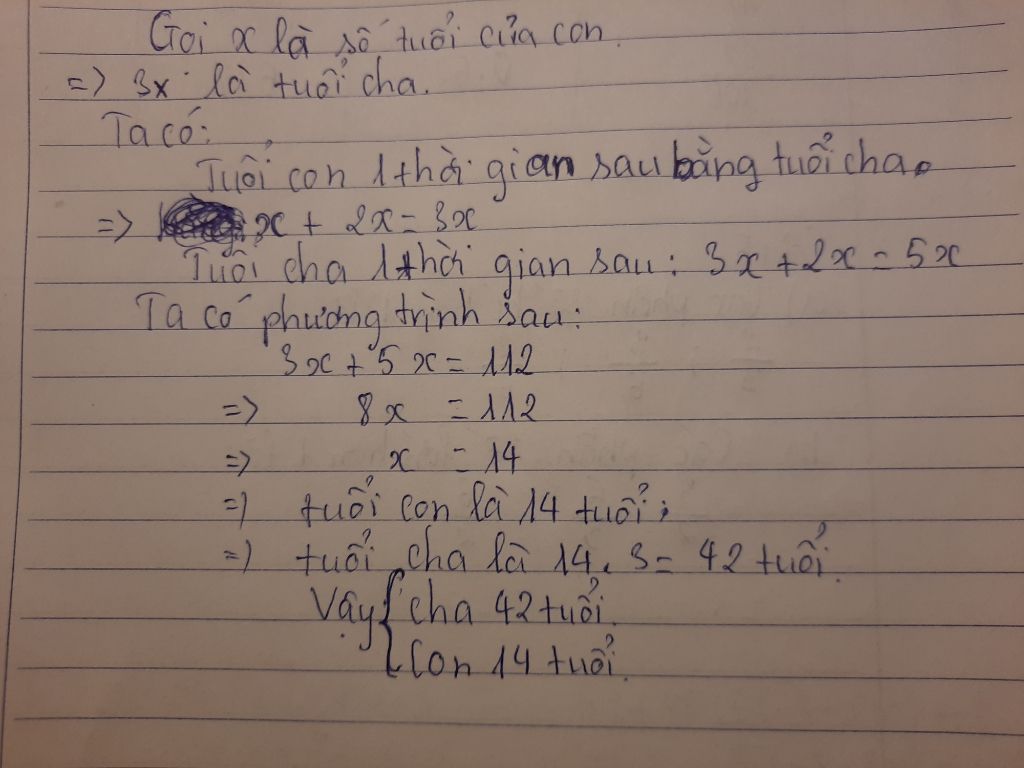 Gọi x là số tuổi của con.
=> 3x là tuổi cha.
Ta có:
Tuổi con 1 thời gian sau bằng tuổi cha.
=> x + 2x = 3x
Tuổi cha 1 thời gian sau: 3x + 2x = 5x
Ta có phương trình sau:
3x + 5x = 112
=> 8x = 112
=> x = 14
=> tuổi con là 14 tuổi;
=> tuổi cha là 14.3 = 42 tuổi.
Vậy { cha 42 tuổi.
con 14 tuổi.